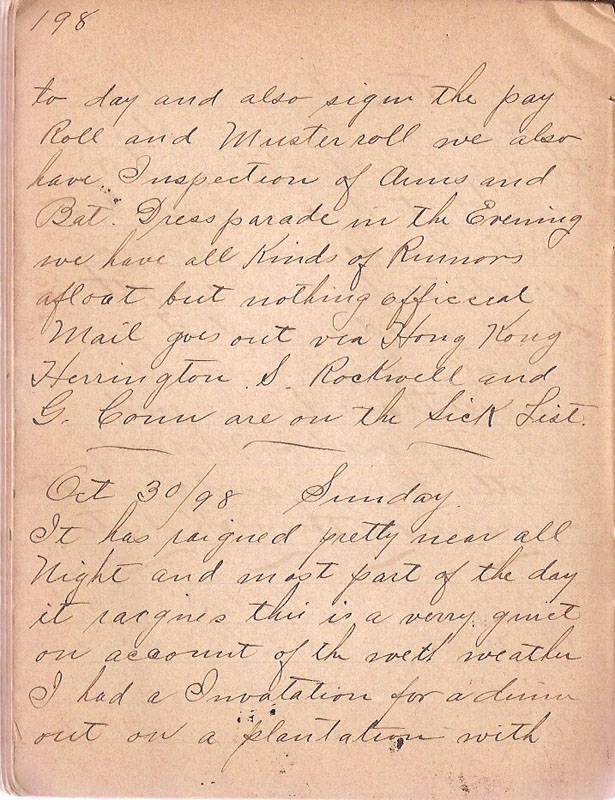 198
to day and also sign the pay
Roll and Muster roll we also
have Inspection of Arms and
Bat. Dress parade in the Evening
we have all Kinds of Rumors
afloat but nothing officeal
Mail goes out via Hong Kong
Herrington S. Rockwell and
G. Conn are on the Sick List.
Oct 30/98 Sunday.
It has raigned pretty near all
Night and most part of the day
it raignes this is a verry quiet
on account of the wett weather
I had a Invatation for a dinner
out on a plantation with